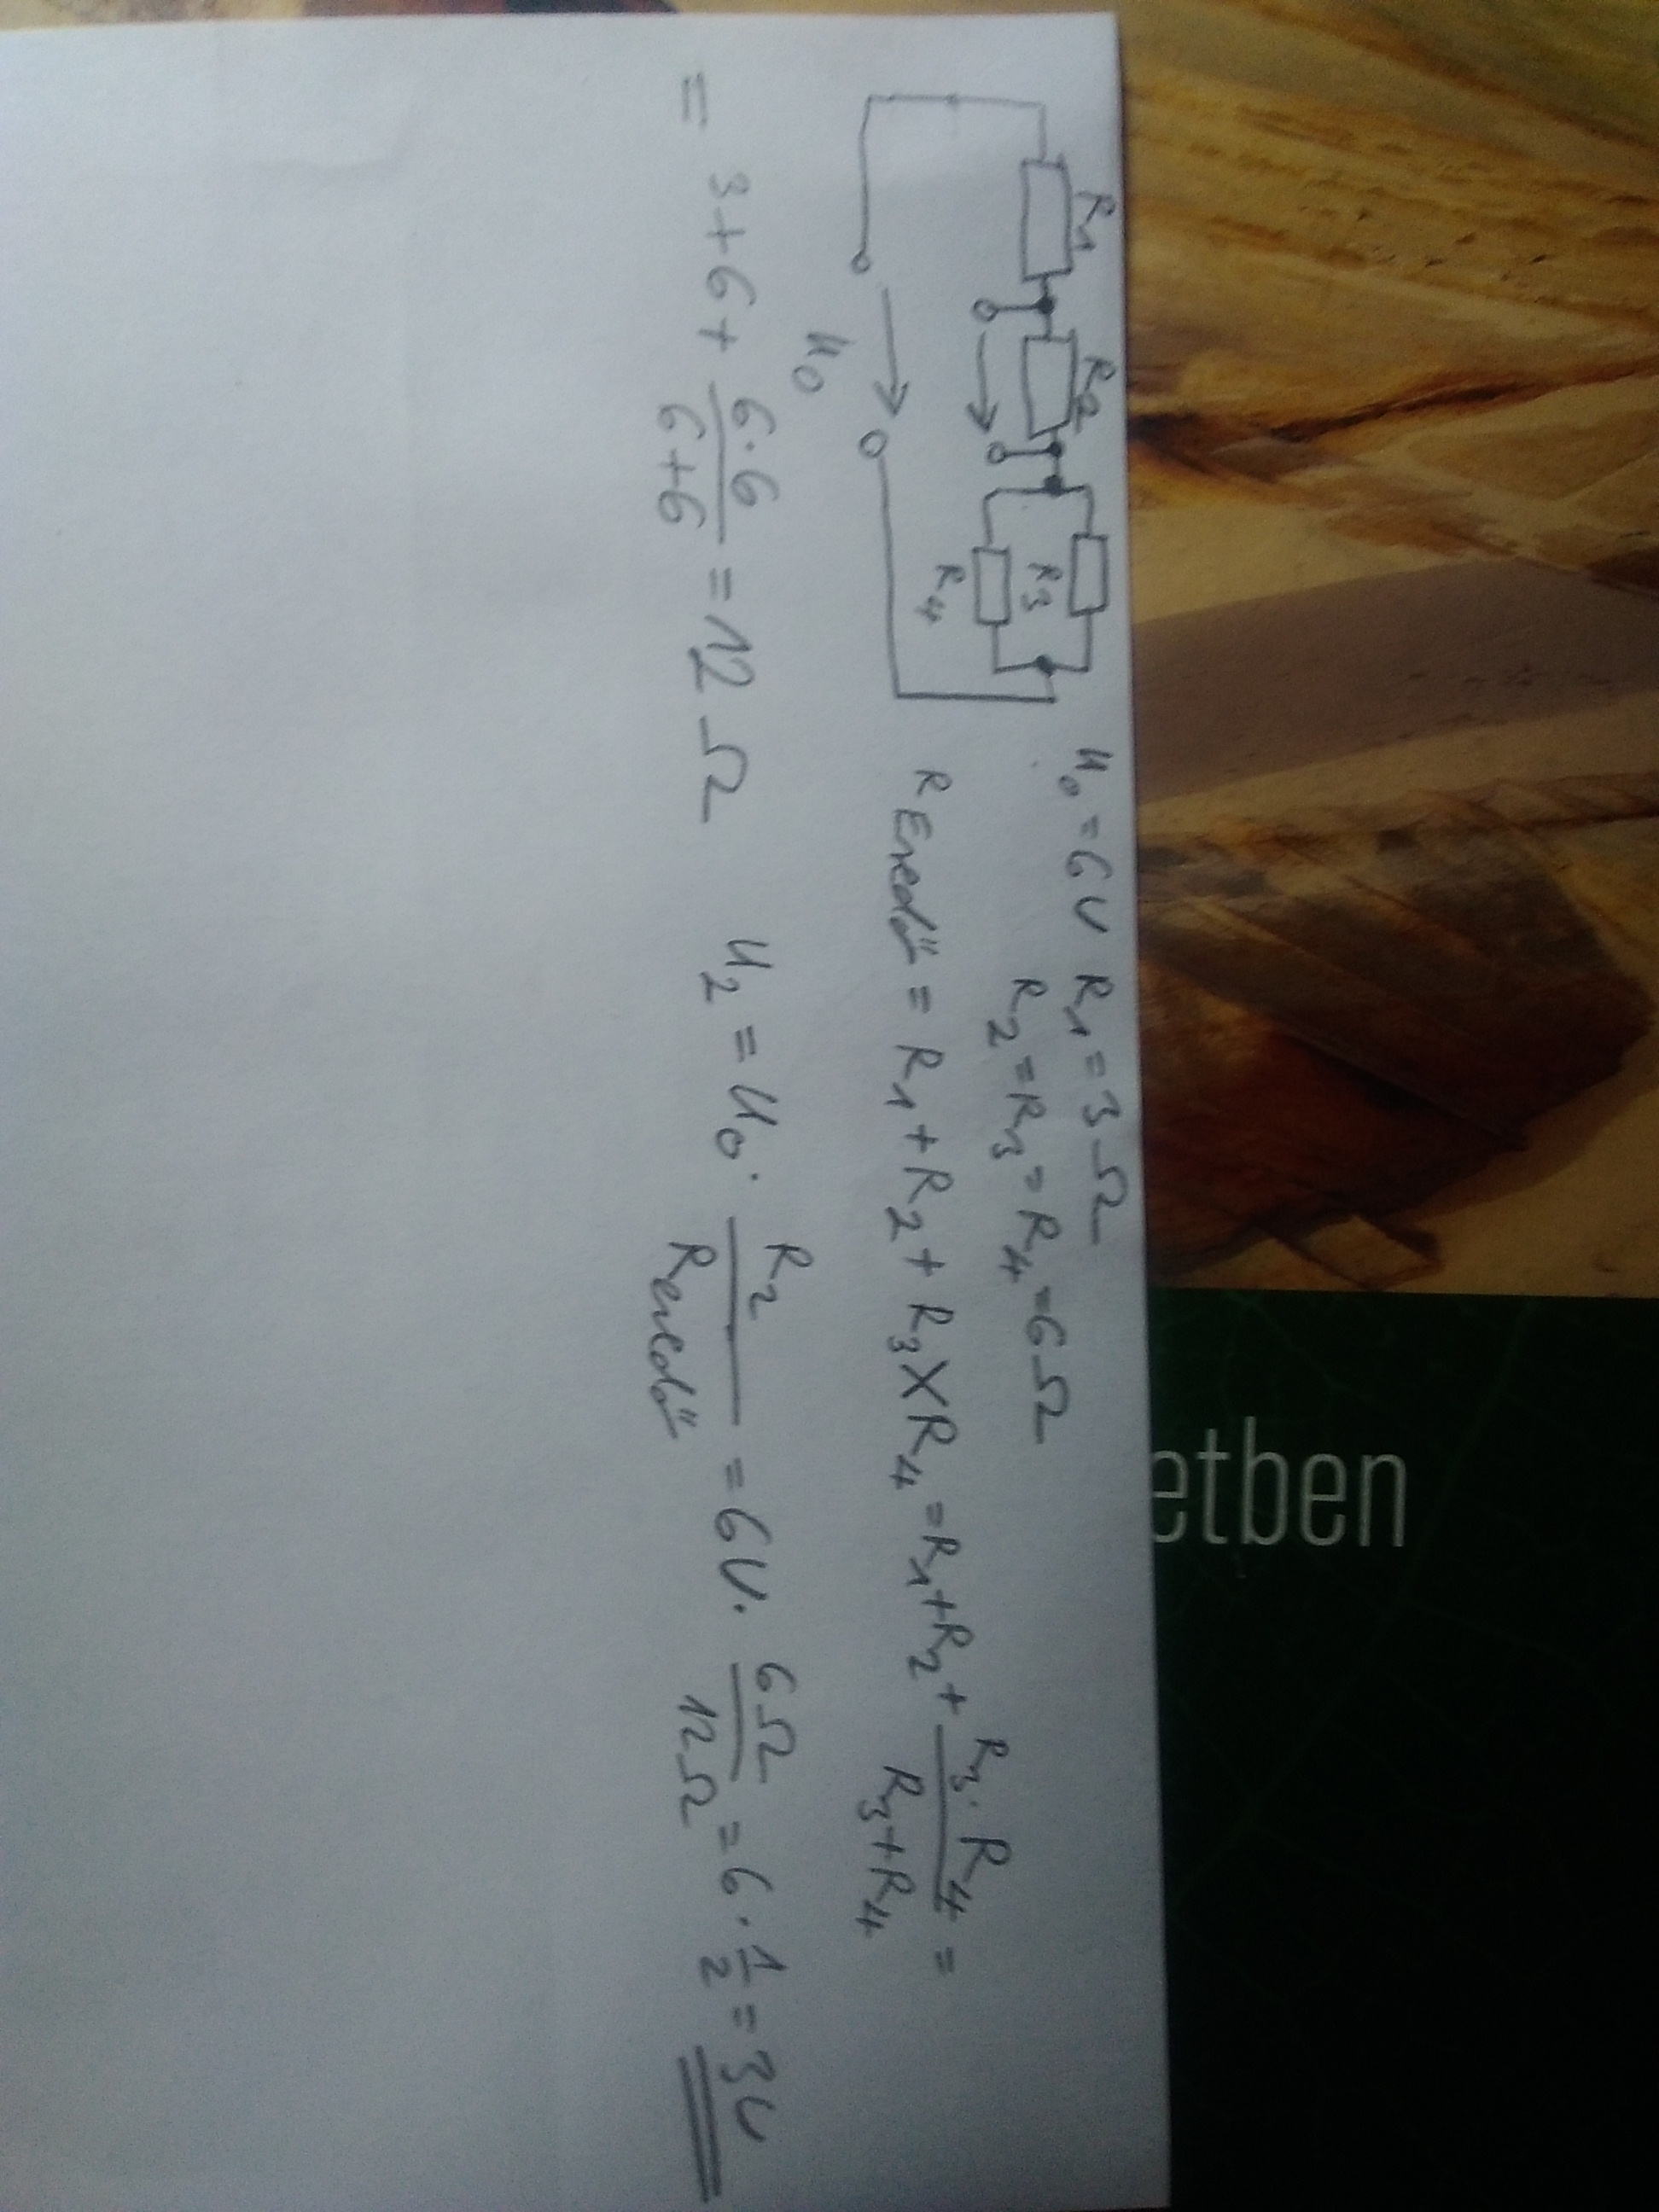 R1 R2 R3 R4
U0
U0 = 6V R1 = 3Ω
R2 = R3 = R4 = 6Ω
REredő = R1 + R2 + R3 X R4 = R1 + R2 + R3·R4 / R3+R4 =
= 3 + 6 + 6·6 / 6+6 = 12 Ω U2 = U0 · R2 / Reredő = 6V · 6Ω / 12Ω = 6 · 1/2 = 3V
etben